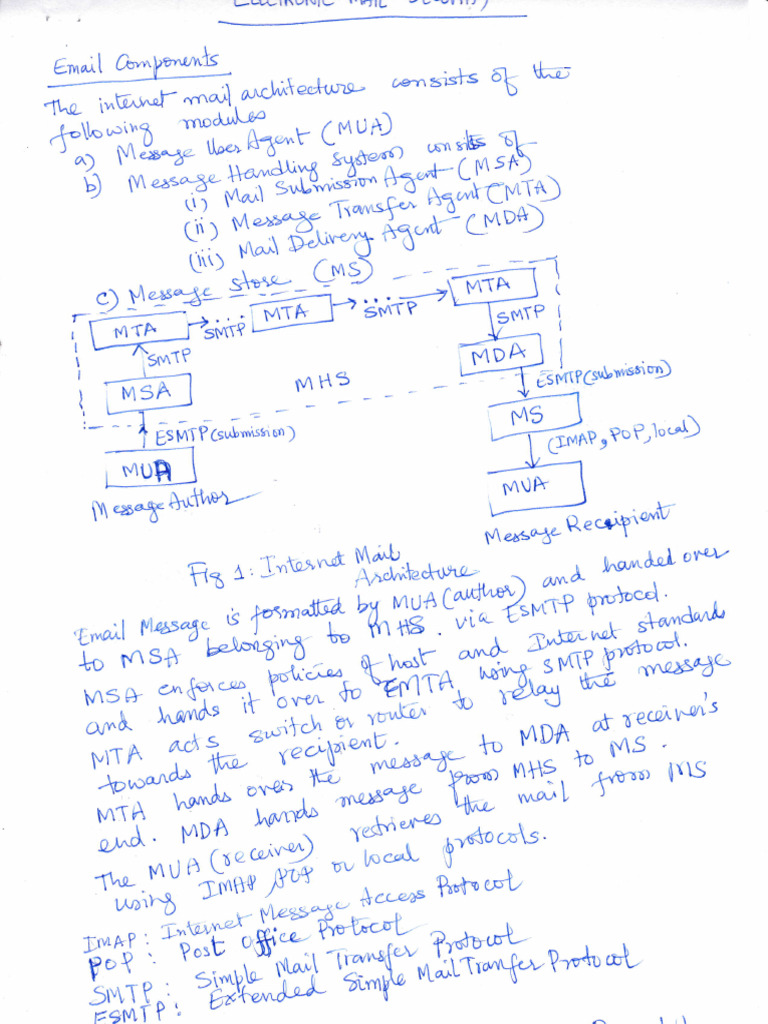 ELECTRONIC MAIL SECURITY
Email Components
The internet mail architecture consists of the
following modules
a) Message User Agent (MUA)
b) Message Handling System consists of
(i) Mail Submission Agent (MSA)
(ii) Message Transfer Agent (MTA)
(iii) Mail Delivery Agent (MDA)
c) Message store (MS)
MTA SMTP MTA SMTP MTA
SMTP SMTP
MSA MHS MDA
ESMTP (submission)
MS
ESMTP (submission)
(IMAP, POP, local)
MUA
MUA
Message Author
Message Recipient
Fig 1: Internet Mail
Architecture
Email Message is formatted by MUA (author) and handed over
to MSA belonging to MHS. via ESMTP protocol.
MSA enforces policies of host and Internet standards
and hands it over to MTA using SMTP protocol.
MTA acts switch or router to relay the message
towards the recipient.
MTA hands over the message to MDA at receiver's
end. MDA hands message from MHS to MS.
The MUA (receiver) retrieves the mail from MS
using IMAP, POP or local protocols.
IMAP: Internet Message Access Protocol
POP: Post Office Protocol
SMTP: Simple Mail Transfer Protocol
ESMTP: Extended Simple Mail Tranfer Protocol